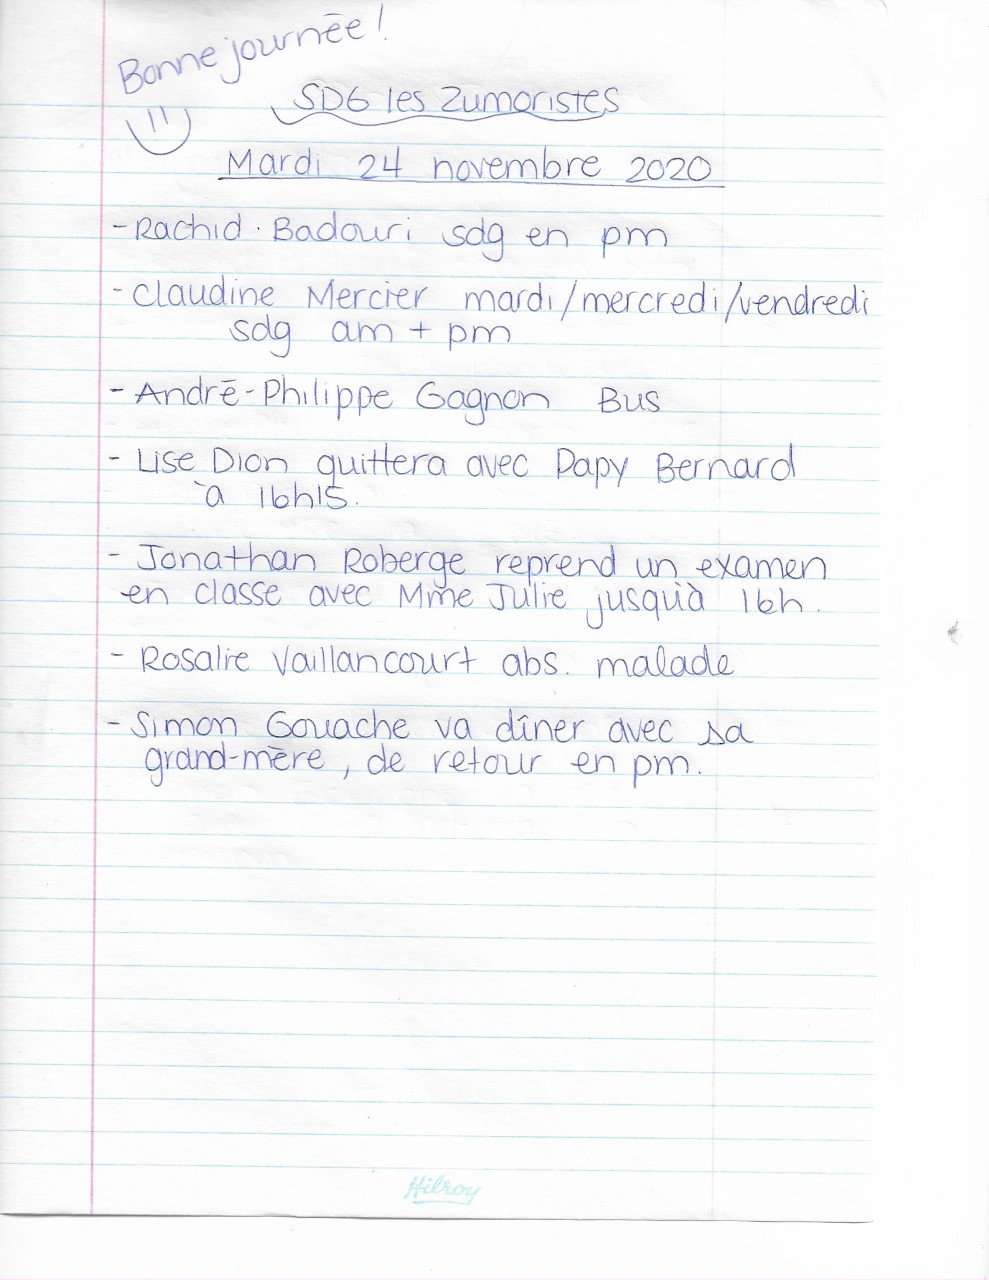 Bonne journée!
SDG les Zumoristes
Mardi 24 novembre 2020
- Rachid Badouri sdg en pm
- Claudine Mercier mardi/mercredi/vendredi
sdg am + pm
- André-Philippe Gagnon Bus
- Lise Dion quittera avec Papy Bernard
à 16h15.
- Jonathan Roberge reprend un examen
en classe avec Mme Julie jusqu'à 16h.
- Rosalie Vaillancourt abs. malade
- Simon Gouache va dîner avec sa
grand-mère, de retour en pm.
Hilroy